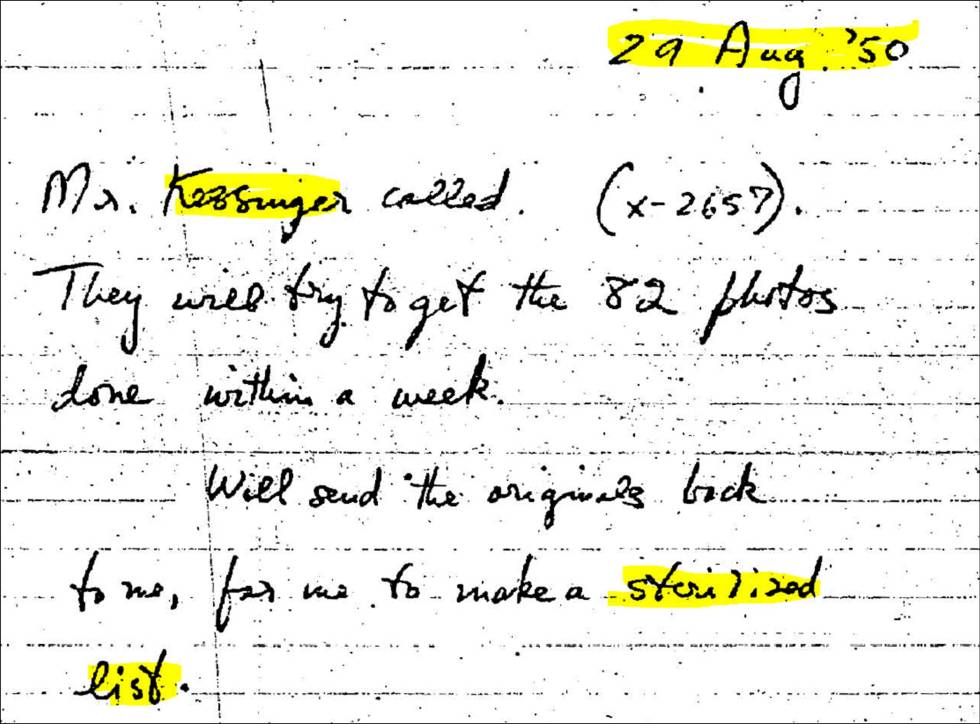 29 Aug. '50
Mr. Kessinger called. (x-2657).
They will try to get the 82 photos
done within a week.
Will send the originals back
to me, for me to make a sterilized
list.